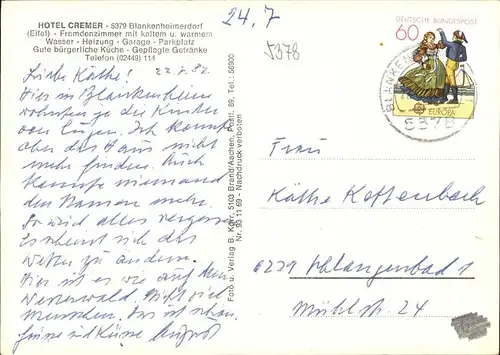 HOTEL CREMER - 5379 Blankenheimerdorf
(Eifel) - Fremdenzimmer mit kaltem u. warmem
Wasser - Heizung - Garage - Parkplatz
Gute bürgerliche Küche - Gepflegte Getränke
Telefon (02449) 114
24.7
5378
DEUTSCHE BUNDESPOST
60
EUROPA
5378
22.7.82
Liebe Käthe!
Hier in Blankenheim
wohnten ja die Kinder
von Eugen. Ich konnte
aber das Haus nicht
mehr finden. Auch
kannte niemand
den Namen mehr.
So wird alles vergessen
Es scheint sich das
Wetter zu ändern.
Hier ist es wie auf dem
Westerwald. Nicht viel
Menschen. Das ist schön.
Grüsse und Küsse August
Foto u. Verlag B. Korr, 5103 Brand/Aachen, Postf. 89, Tel.: 56900
Nr. 93 11 69 - Nachdruck verboten
Frau
Käthe Kettenbach
6229 Schlangenbad 1
Mühlstr. 24